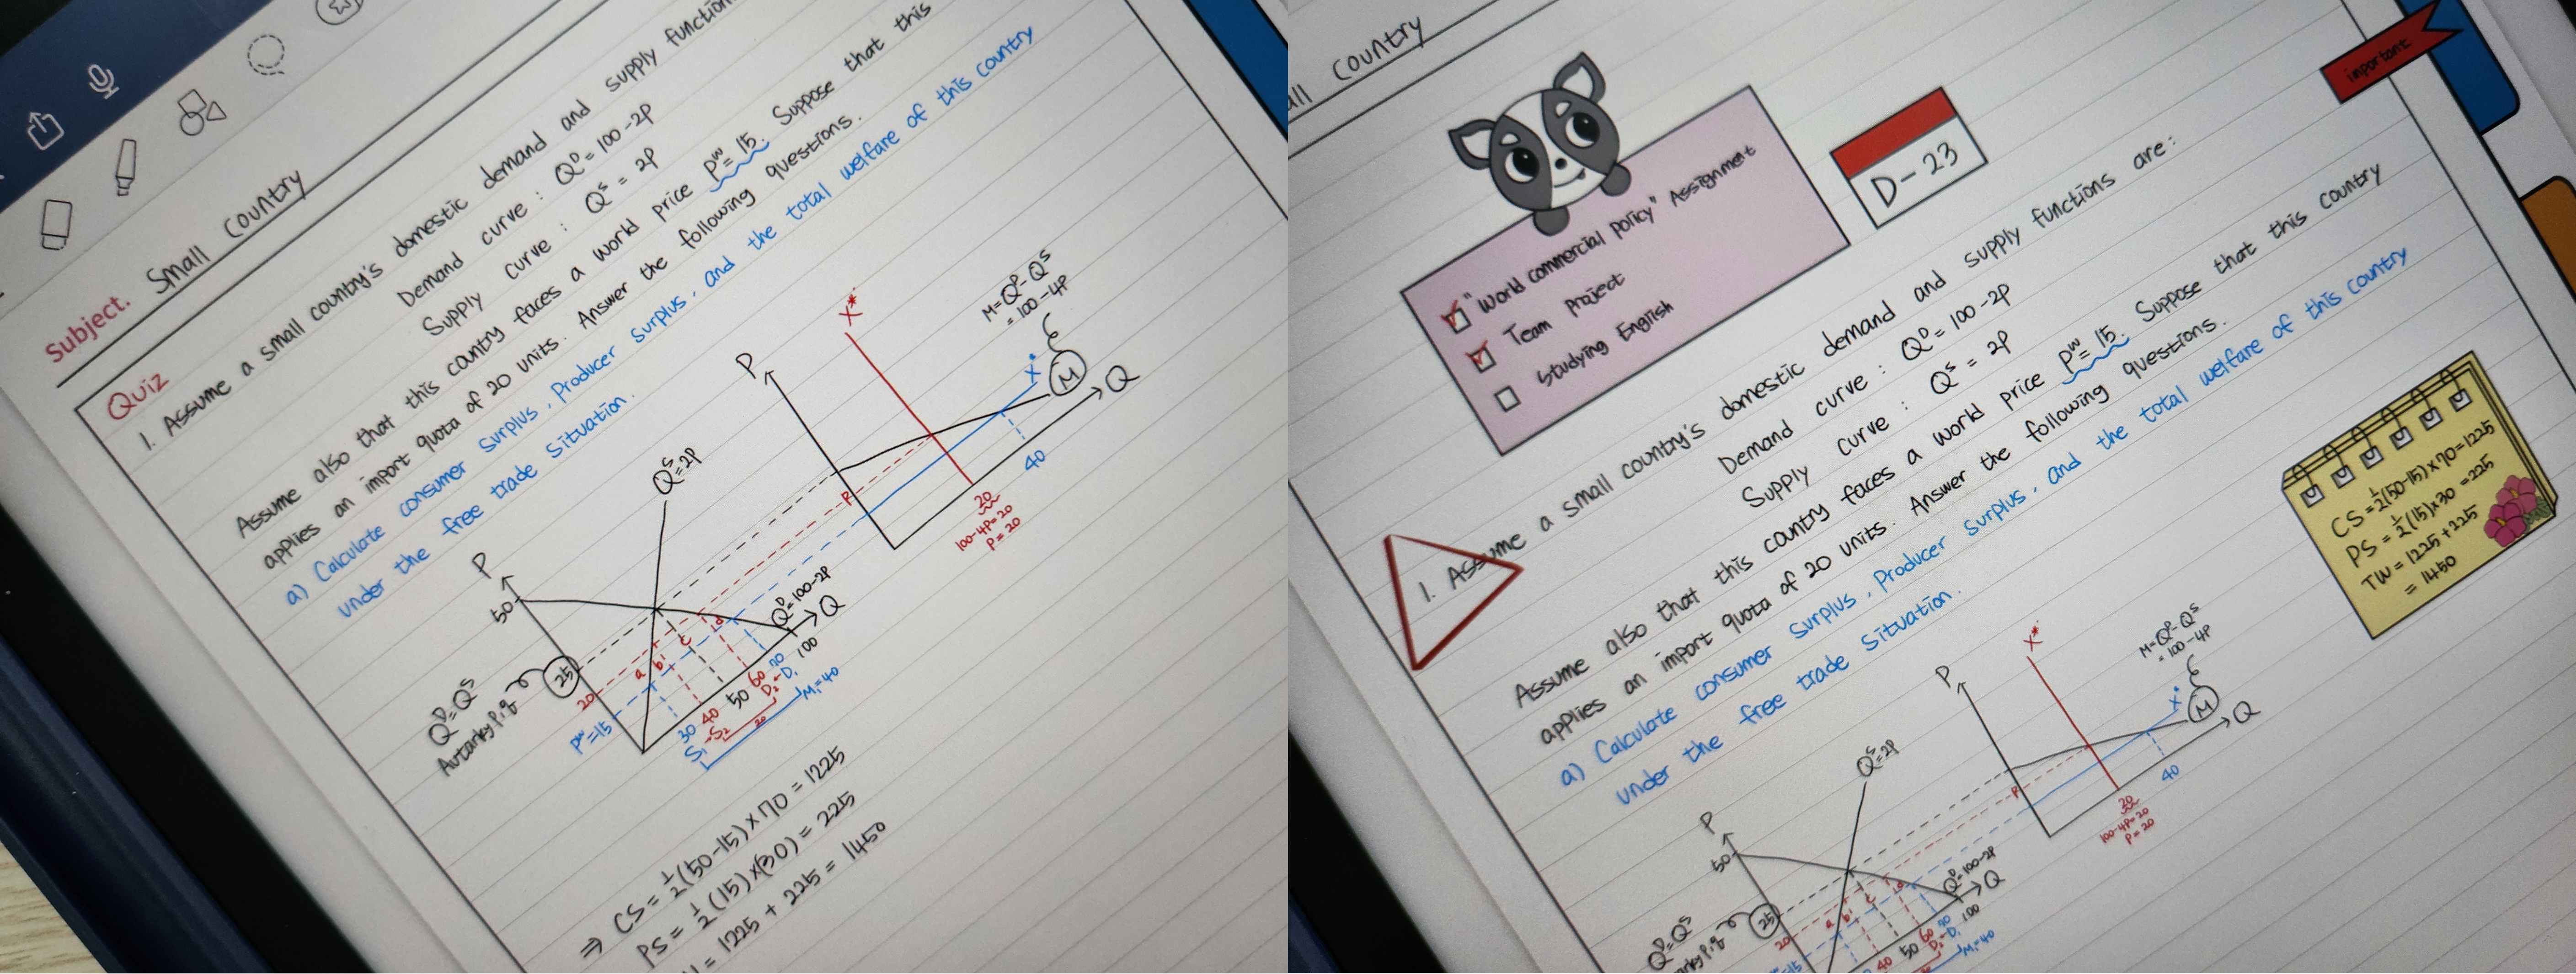 Subject. Small Country
Quiz
1. Assume a small country's domestic demand and supply function
Demand curve : Q^D = 100 - 2P
Supply curve : Q^S = 2P
Assume also that this country faces a world price P^W = 15. Suppose that this
applies an import quota of 20 units. Answer the following questions.
a) Calculate consumer surplus, Producer surplus, and the total welfare of this country
under the free trade situation.
P
X*
M = Q^D - Q^S
= 100 - 4P
X*
M
Q
P
40
20
100-4P=20
P=20
P
50
Q^S = 2P
Q^D = 100-2P
Q
Q^D = Q^S
Autarky P, q
25
20
P^W = 15
a
b
c
d
30
40
50
60
70
100
S₁→S₂
D₂←D₁
20
M₁=40
⇒ CS = ½(50-15) × 70 = 1225
PS = ½(15) × (30) = 225
= 1225 + 225 = 1450
all Country
important
"World commercial policy" Assignment
Team Project
Studying English
D-23
1. Assume a small country's domestic demand and supply functions are :
Demand curve : Q^D = 100 - 2P
Supply curve : Q^S = 2P
Assume also that this country faces a world price P^W = 15. Suppose that this country
applies an import quota of 20 units. Answer the following questions.
a) Calculate consumer surplus, Producer surplus, and the total welfare of this country
under the free trade situation.
CS = ½(50-15) × 70 = 1225
PS = ½(15) × 30 = 225
TW = 1225 + 225
= 1450
P
X*
M = Q^D - Q^S
= 100 - 4P
X*
M
Q
P
40
20
100-4P=20
P=20
P
50
Q^S = 2P
Q^D = 100-2P
Q
Q^D = Q^S
arky P, q
25
20
=15
a
b
c
d
40
50
60
70
100
D₂←D₁
M₁=40